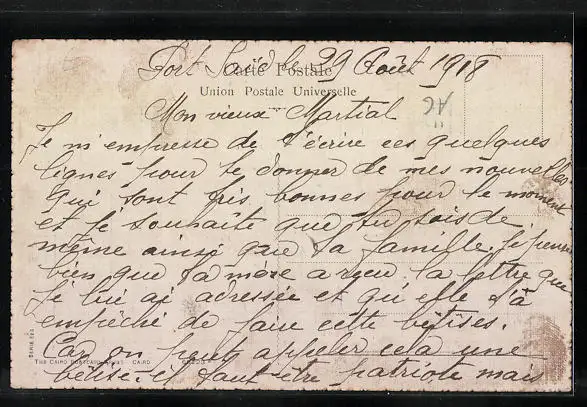 Port Saïd le 29 Août 1918
Carte Postale
Union Postale Universelle
Mon vieux Martial
Je m'empresse de t'écrire ces quelques
lignes pour te donner de mes nouvelles
qui sont très bonnes pour le moment
et je souhaite que tu sois de
même ainsi que ta famille. Je pense
bien que ta mère a reçu la lettre que
je lui ai adressée et qu'elle t'a
empêché de faire cette bêtises.
Car on peut appeler cela une
bêtise. il faut être patriote mais
THE CAIRO POSTCARD TRUST CAIRO